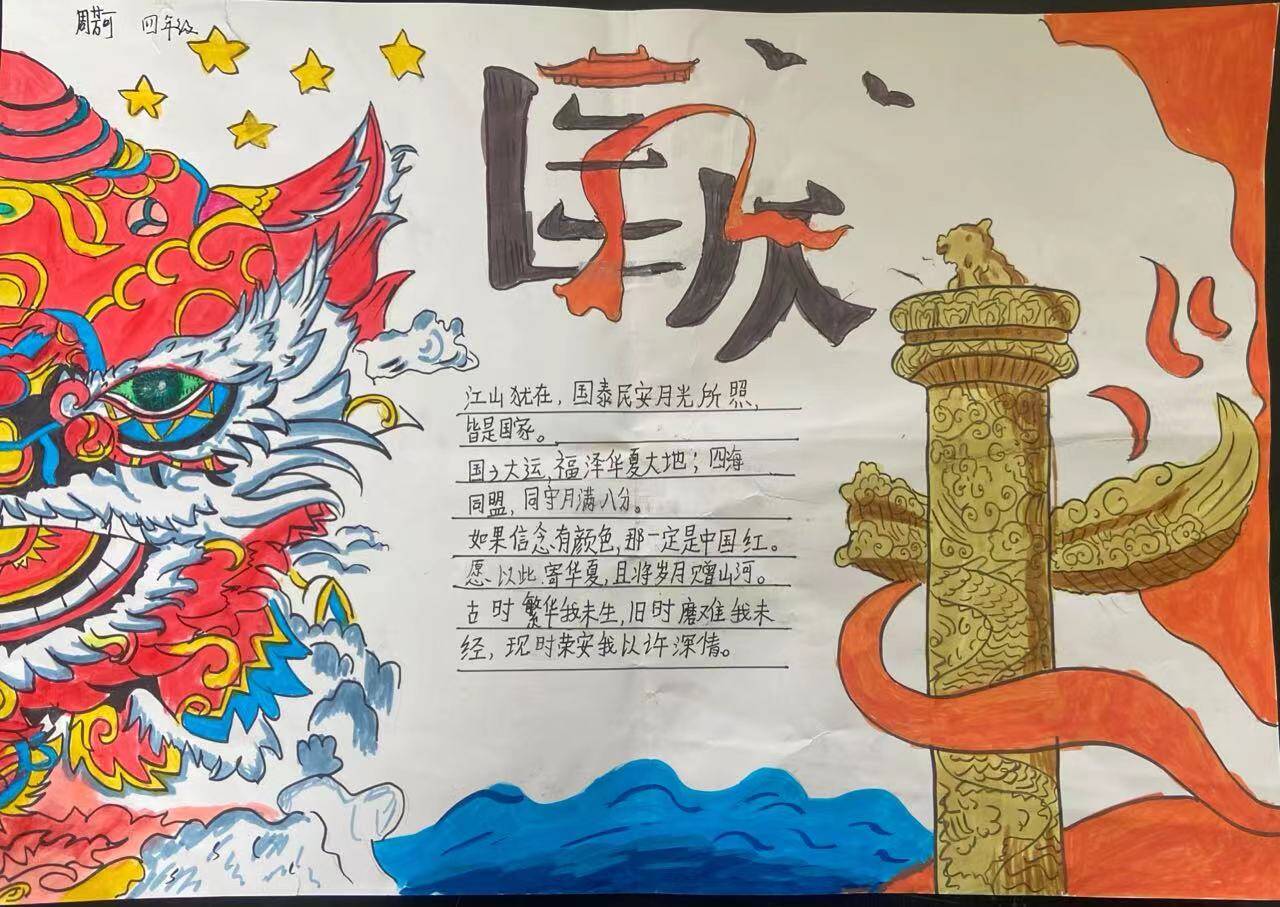 周苛 四年级
国庆
江山犹在，国泰民安月光所照，
皆是国家。
国之大运，福泽华夏大地；四海
同盟，同守月满八分。
如果信念有颜色，那一定是中国红。
愿以此寄华夏，且将岁月赠山河。
古时繁华我未生，旧时磨难我未
经，现时荣安我以许深情。